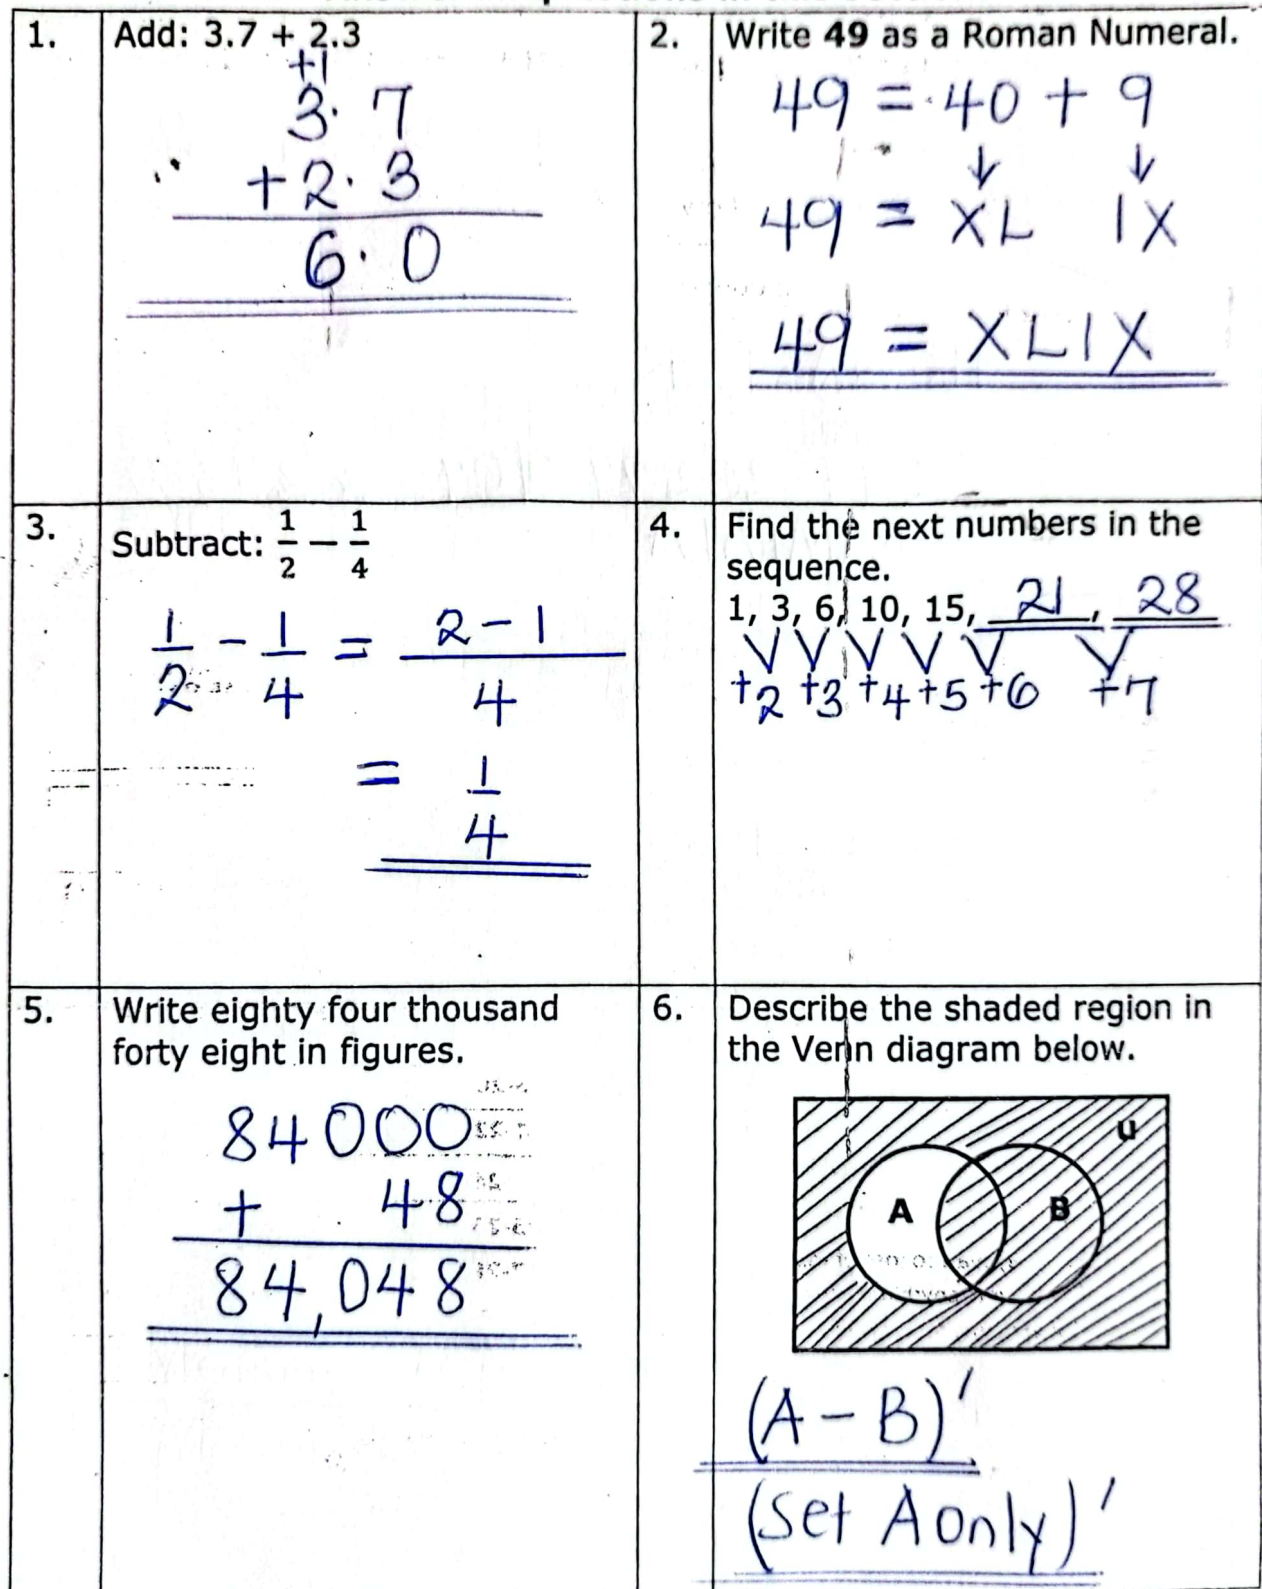 1.
Add: 3.7 + 2.3
+1
3.7
+2.3
6.0
2.
Write 49 as a Roman Numeral.
49 = 40 + 9
↓ ↓
49 = XL IX
49 = XLIX
3.
Subtract: 1/2 − 1/4
1/2 − 1/4 = 2 − 1/4
= 1/4
4.
Find the next numbers in the
sequence.
1, 3, 6, 10, 15, 21, 28
+2 +3 +4 +5 +6 +7
5.
Write eighty four thousand
forty eight in figures.
84000
+ 48
84,048
6.
Describe the shaded region in
the Venn diagram below.
U
A B
(A − B)′
(Set A only)′